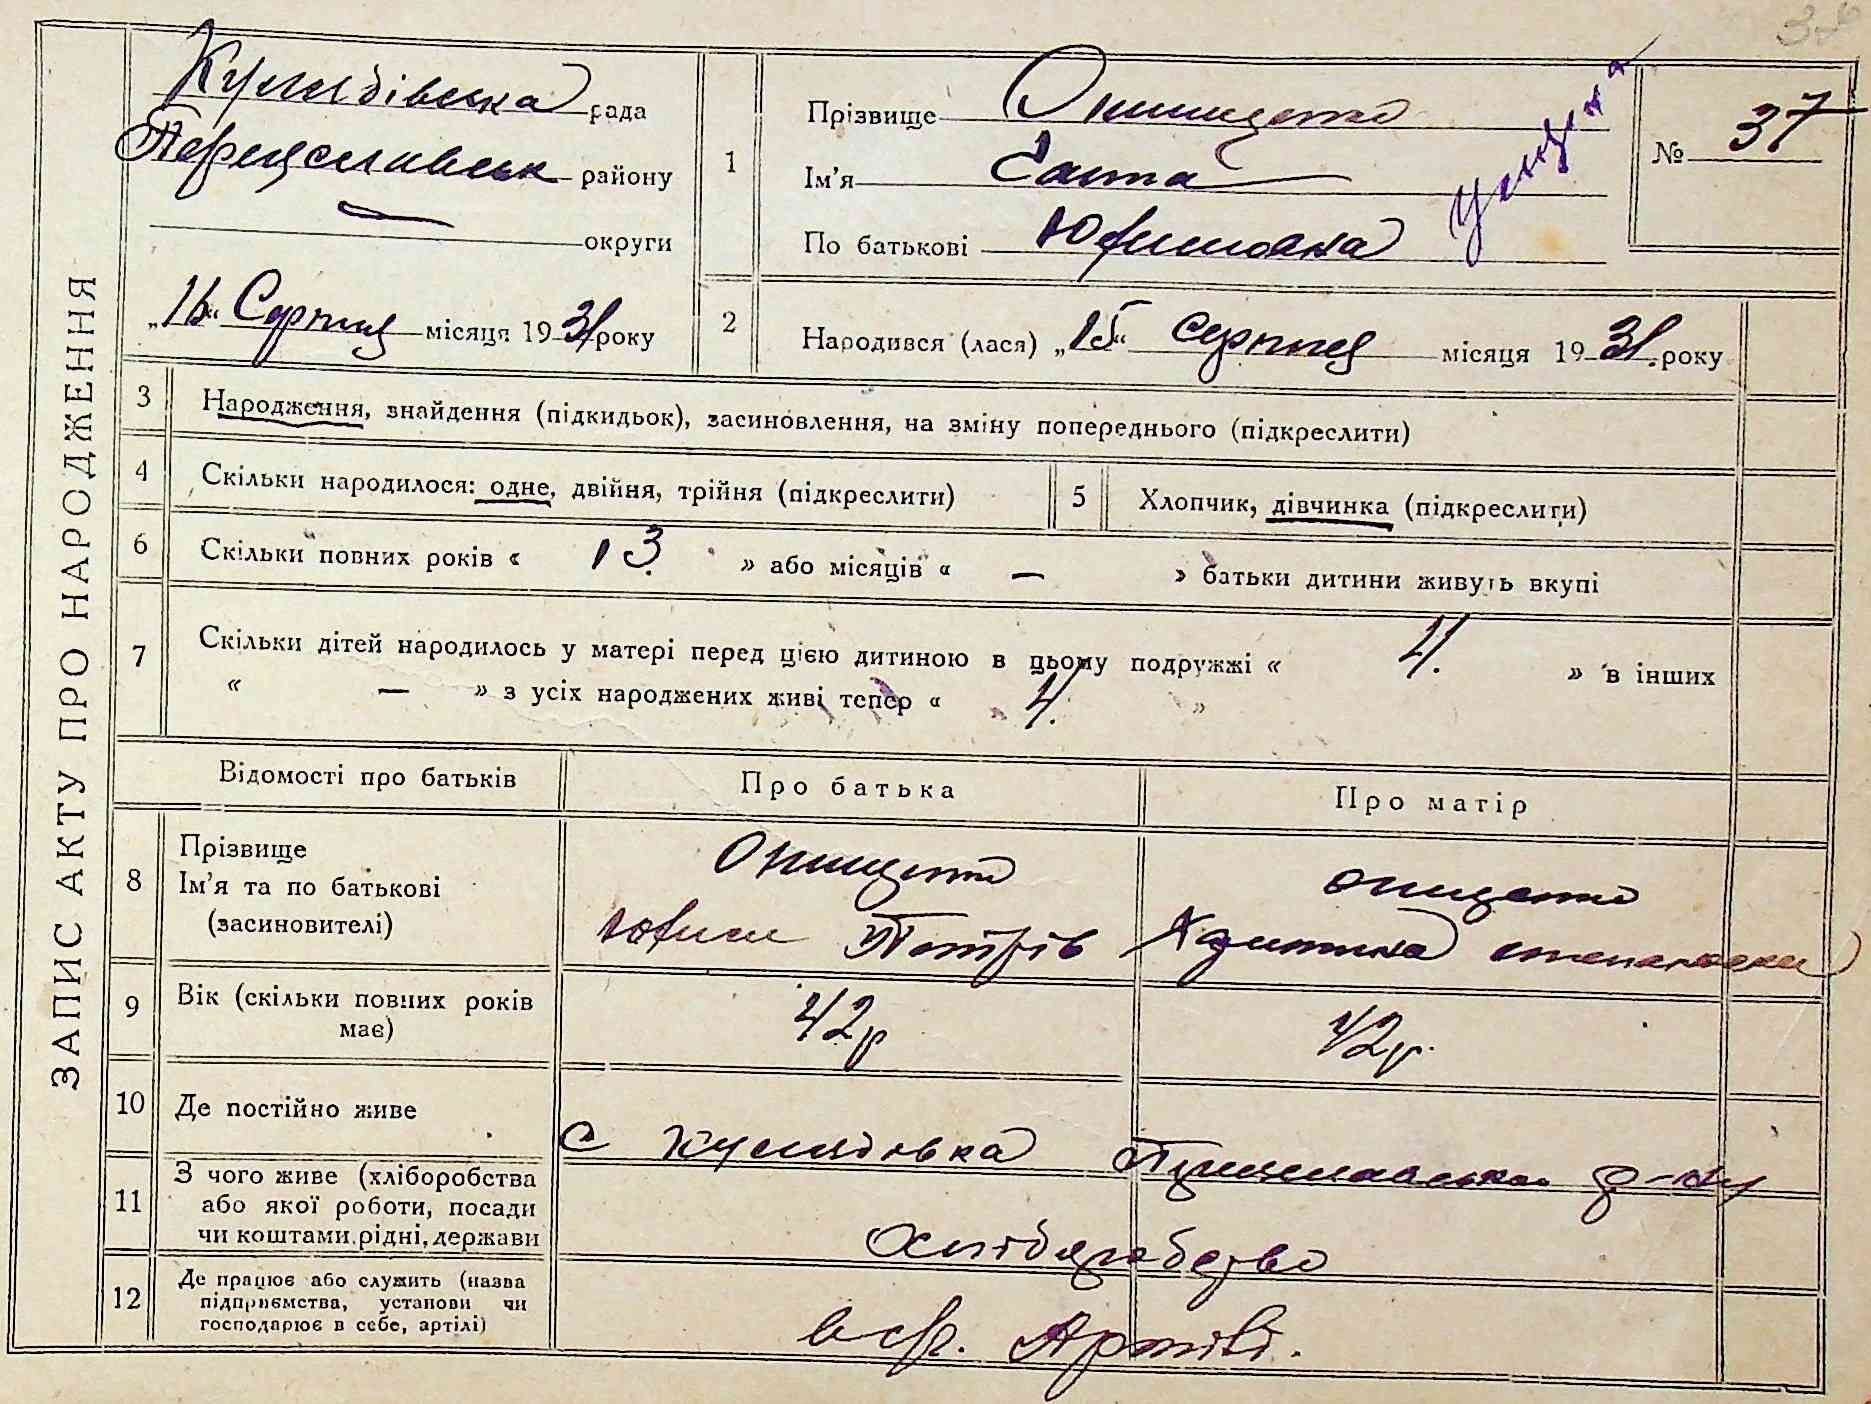 ЗАПИС АКТУ ПРО НАРОДЖЕННЯ
рада
Переяславськ району
— округи
„16“ Серпня місяця 1931 року
1
Прізвище Онищенко
Ім'я
По батькові Юхимовна
№ 37
2
Народився (лася) „15“ серпня місяця 1931. року
3
Народження, знайдення (підкидьок), засиновлення, на зміну попереднього (підкреслити)
4
Скільки народилося: одне, двійня, трійня (підкреслити)
5
Хлопчик, дівчинка (підкреслити)
6
Скільки повних років « 13. » або місяців « — » батьки дитини живуть вкупі
7
Скільки дітей народилось у матері перед цією дитиною в цьому подружжі « 4. » в інших
« — » з усіх народжених живі тепер « 4. »
Відомості про батьків
Про батька
Про матір
8
Прізвище
Ім'я та по батькові
(засиновителі)
Онищенко
Петрів
Онищенко
9
Вік (скільки повних років
має)
42р
42р.
10
Де постійно живе
с
р-ну
11
З чого живе (хліборобства
або якої роботи, посади
чи коштами рідні, держави
12
Де працює або служить (назва
підприємства, установи чи
господарює в себе, артілі)
Артілі.